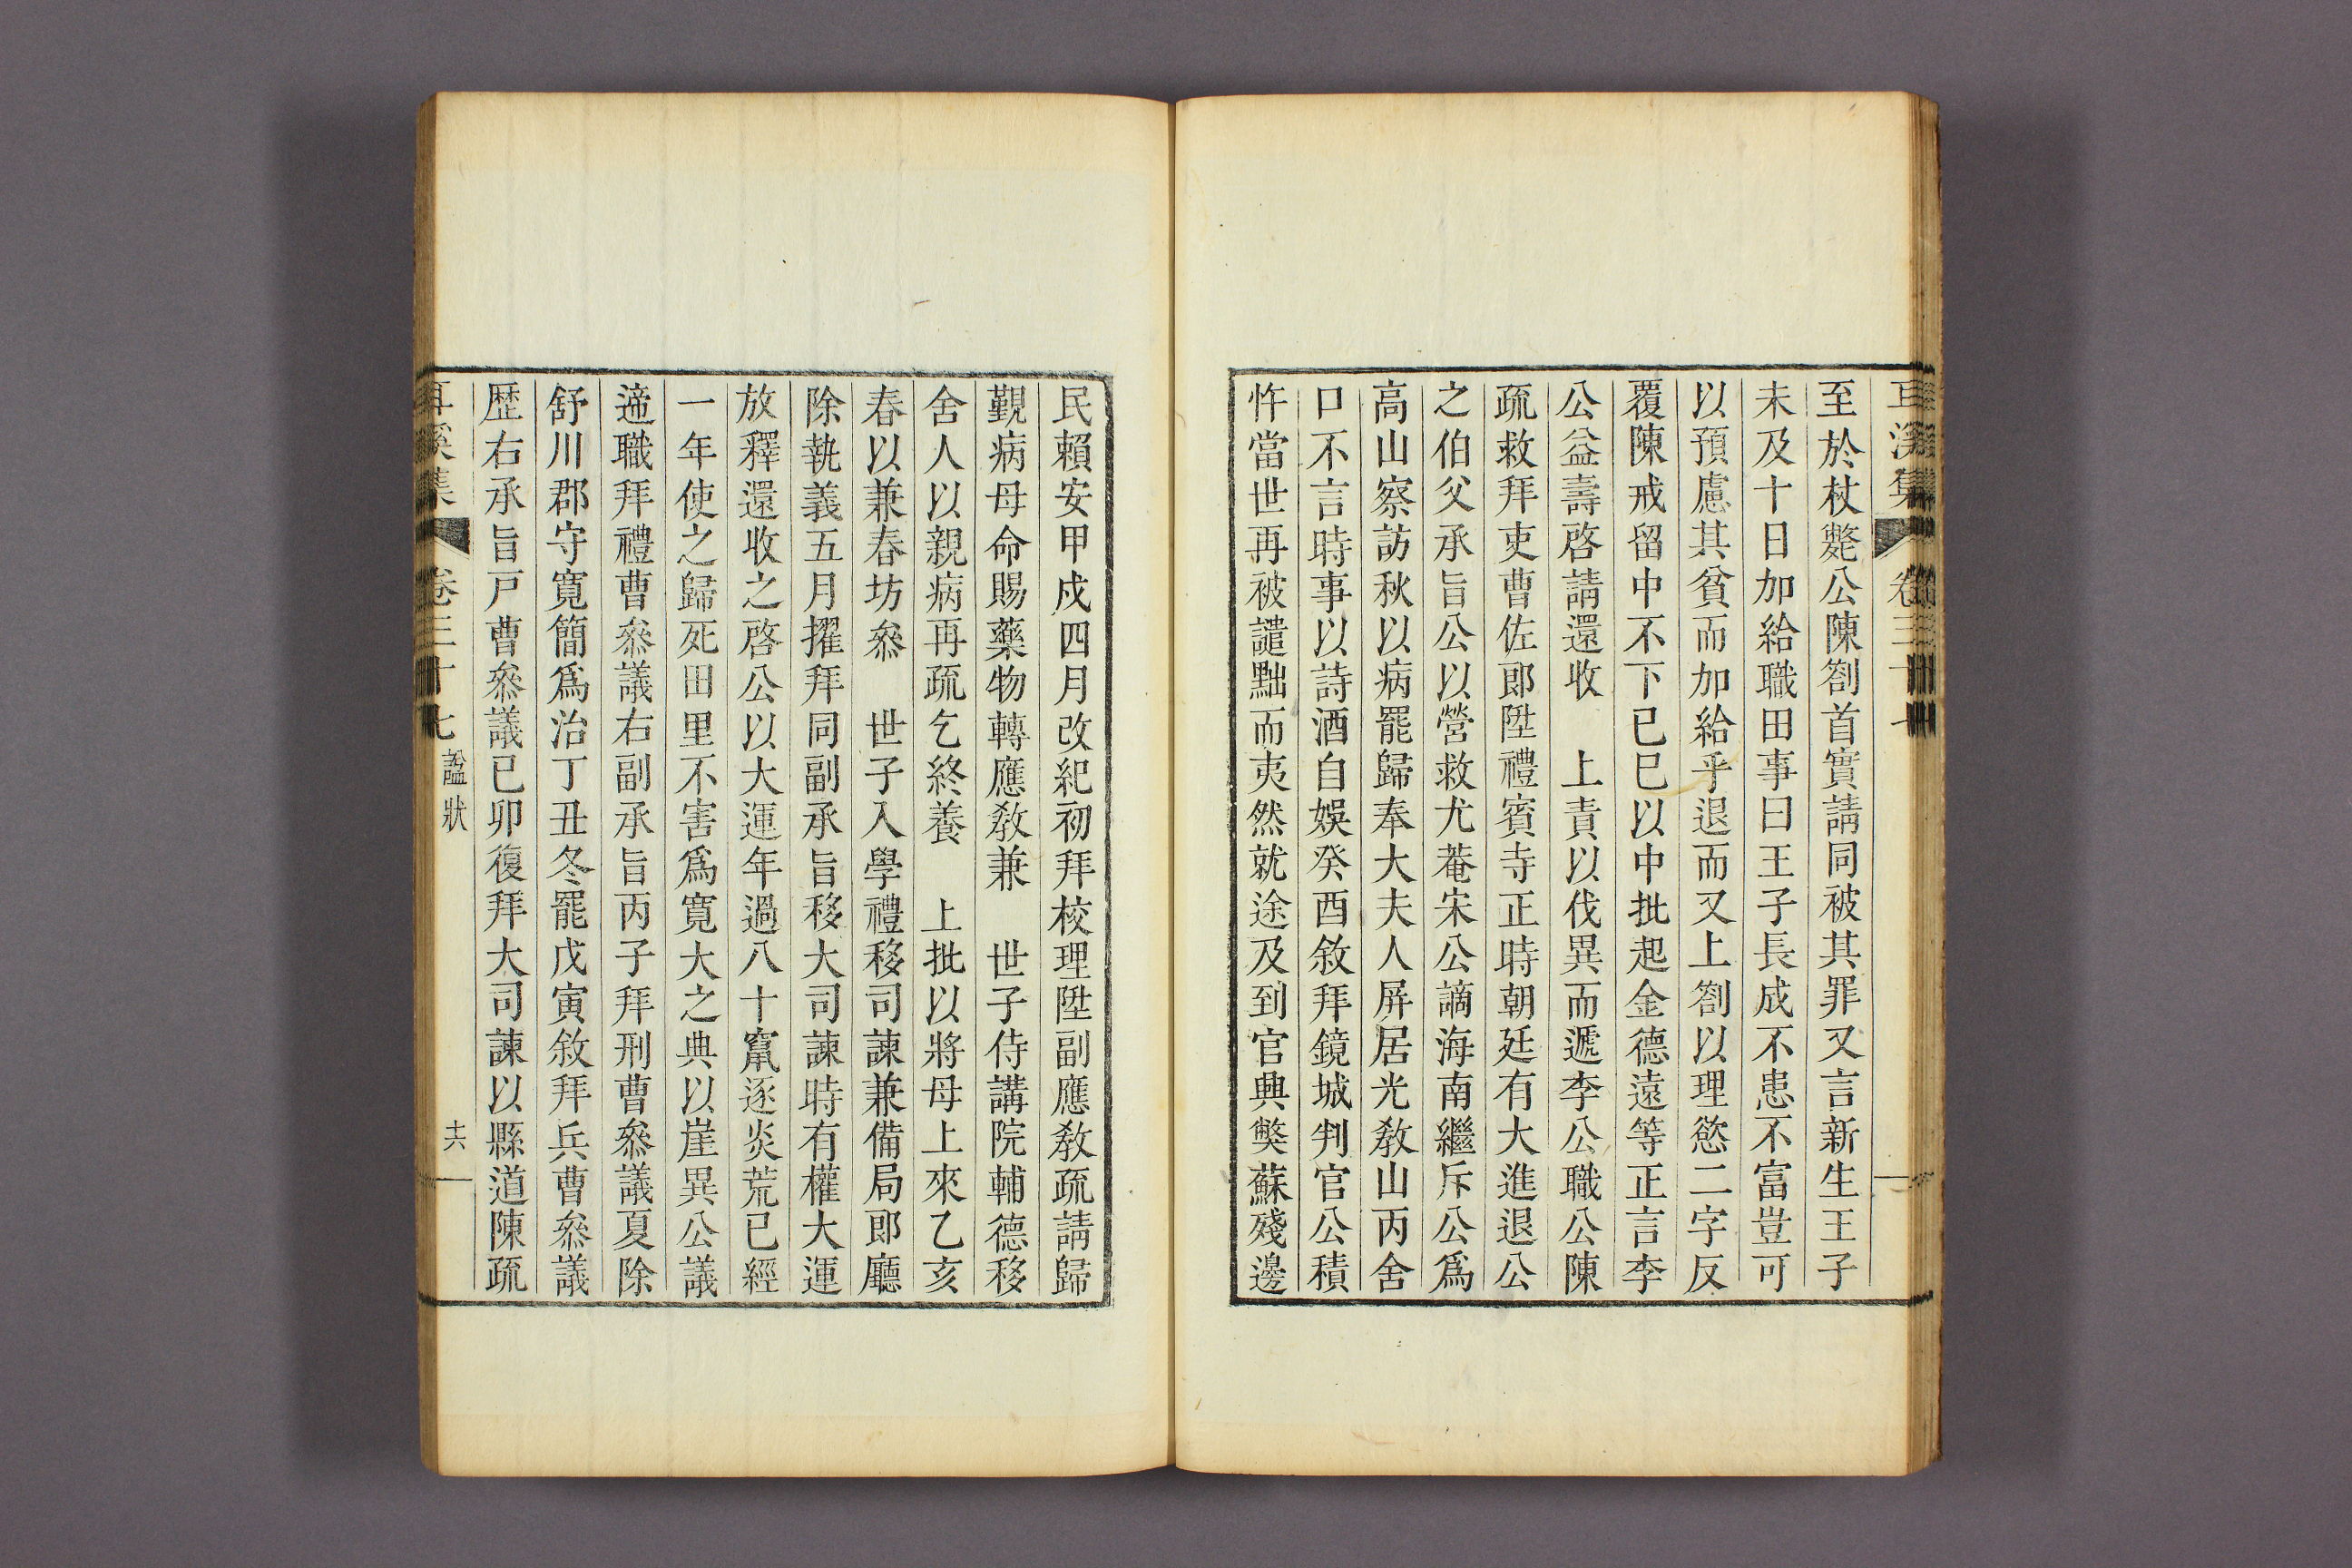 至於杖斃公陳劄首實請同被其罪又言新生王子
未及十日加給職田事曰王子長成不患不富豈可
以預慮其貧而加給乎退而又上劄以理慾二字反
覆陳戒留中不下已巳以中批起金德遠等正言李
公益壽啓請還收　上責以伐異而遞李公職公陳
疏救拜吏曹佐郎陞禮賓寺正時朝廷有大進退公
之伯父承旨公以營救尤菴宋公謫海南繼斥公爲
高山察訪秋以病罷歸奉大夫人屏居光教山丙舍
口不言時事以詩酒自娛癸酉敘拜鏡城判官公積
忤當世再被譴黜而夷然就途及到官興獘蘇殘邊
民賴安甲戍四月改紀初拜校理陞副應敎疏請歸
覲病母命賜藥物轉應敎兼　世子侍講院輔德移
舍人以親病再疏乞終養　上批以將母上來乙亥
春以兼春坊叅　世子入學禮移司諫兼備局郎廳
除執義五月擢拜同副承旨移大司諫時有權大運
放釋還收之啓公以大運年過八十竄逐炎荒已經
一年使之歸死田里不害爲寬大之典以崖異公議
遞職拜禮曹叅議右副承旨丙子拜刑曹叅議夏除
舒川郡守寬簡爲治丁丑冬罷戊寅敘拜兵曹叅議
歷右承旨戸曹叅議已卯復拜大司諫以縣道陳疏
耳溪集　卷三十七　諡狀　十六